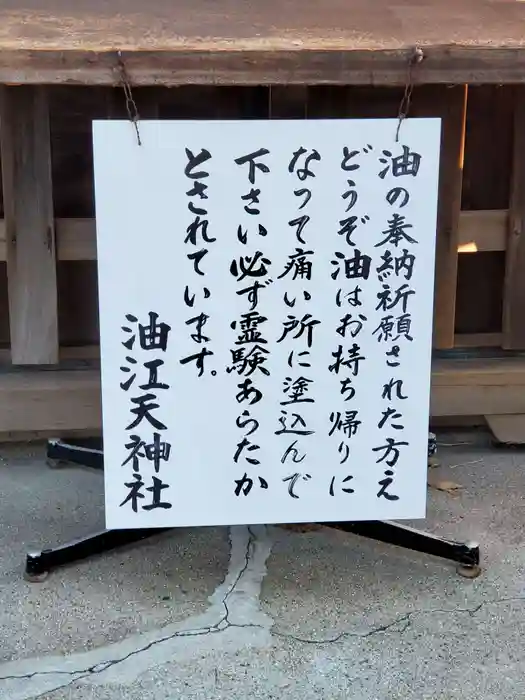 油の奉納祈願された方え
どうぞ油はお持ち帰りに
なって痛い所に塗込んで
下さい必ず霊験あらたか
とされています。
油江天神社